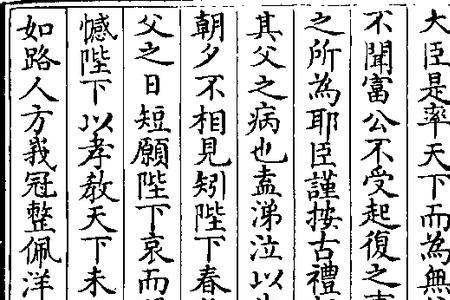 大臣是率天下而為無
不聞富公不受起復之
之所為耶臣謹按古禮
其父之病也盍涕泣以
朝夕不相見矧陛下春
父之日短願陛下哀而
憾陛下以孝敎天下未
如路人方峩冠整佩洋